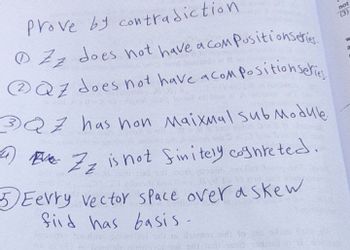 Prove by contradiction
① Z_Z does not have a composition series.
② Q_Z does not have a composition series
③ Q_Z has non Maixmal sub Module
④ Z_Z is not finitely cognreted.
⑤ Eevry vector space over a skew
fiid has basis.